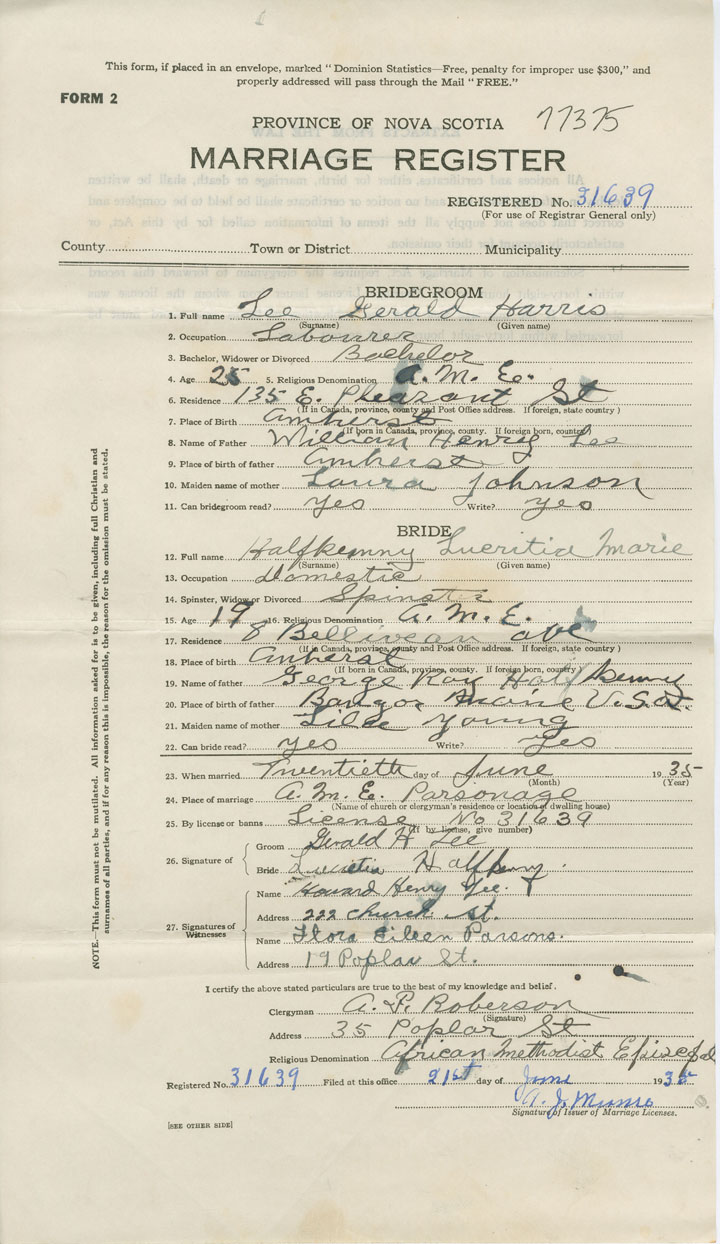 This form, if placed in an envelope, marked "Dominion Statistics—Free, penalty for improper use $300," and
properly addressed will pass through the Mail "FREE."
FORM 2
PROVINCE OF NOVA SCOTIA 77375
MARRIAGE REGISTER
REGISTERED No. 31639
(For use of Registrar General only)
County Town or District Municipality
BRIDEGROOM
1. Full name Lee Gerald Harris
(Surname) (Given name)
2. Occupation Labourer
3. Bachelor, Widower or Divorced Bachelor
4. Age 25 5. Religious Denomination A. M. E.
6. Residence 135 E. Pleasant St
(If in Canada, province, county and Post Office address. If foreign, state country)
7. Place of Birth Amherst
(If born in Canada, province, county. If foreign born, country)
8. Name of Father William Henry Lee
9. Place of birth of father Amherst
10. Maiden name of mother Laura Johnson
11. Can bridegroom read? yes Write? yes
BRIDE
12. Full name Halfkenny Lucritia Marie
(Surname) (Given name)
13. Occupation Domestic
14. Spinster, Widow or Divorced Spinster
15. Age 19 16. Religious Denomination A. M. E.
17. Residence 8 Belliveau ave
(If in Canada, province, county and Post Office address. If foreign, state country)
18. Place of birth Amherst
(If born in Canada, province, county. If foreign born, country)
19. Name of father George Roy Halfkenny
20. Place of birth of father Bangor Maine U.S.A.
21. Maiden name of mother Young
22. Can bride read? yes Write? yes
23. When married Twentieth day of June 1935
(Month) (Year)
24. Place of marriage A. M. E. Parsonage
(Name of church or clergyman's residence or location of dwelling house)
25. By license or banns License No 31639
(If by license, give number)
26. Signature of
Groom Gerald H Lee
Bride Lucretia Halfkenny.
27. Signatures of Witnesses
Name Howard Henry Lee.
Address 222 Church St.
Name Flora Eileen Parsons.
Address 19 Poplar St.
I certify the above stated particulars are true to the best of my knowledge and belief.
Clergyman A. F. Roberson
(Signature)
Address 35 Poplar St
Religious Denomination African Methodist Episcopal
Registered No. 31639 Filed at this office 21st day of June 1935
A. J. Munro
Signature of Issuer of Marriage Licenses.
[SEE OTHER SIDE]
NOTE.—This form must not be mutilated. All information asked for is to be given, including full Christian and
surnames of all parties, and if for any reason this is impossible, the reason for the omission must be stated.